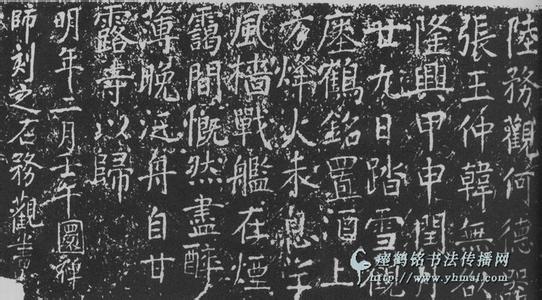 陸務觀何德器
張玉仲韓無咎
隆興甲申閏月
廿九日踏雪觀
瘞鶴銘置酒上
方烽火未息望
風檣戰艦在煙
靄間慨然盡醉
薄晚泛舟自甘
露寺以歸
明年二月壬午圜禪
師刻之石務觀書
瘗鹤铭书法传播网
www.yhmsf.com